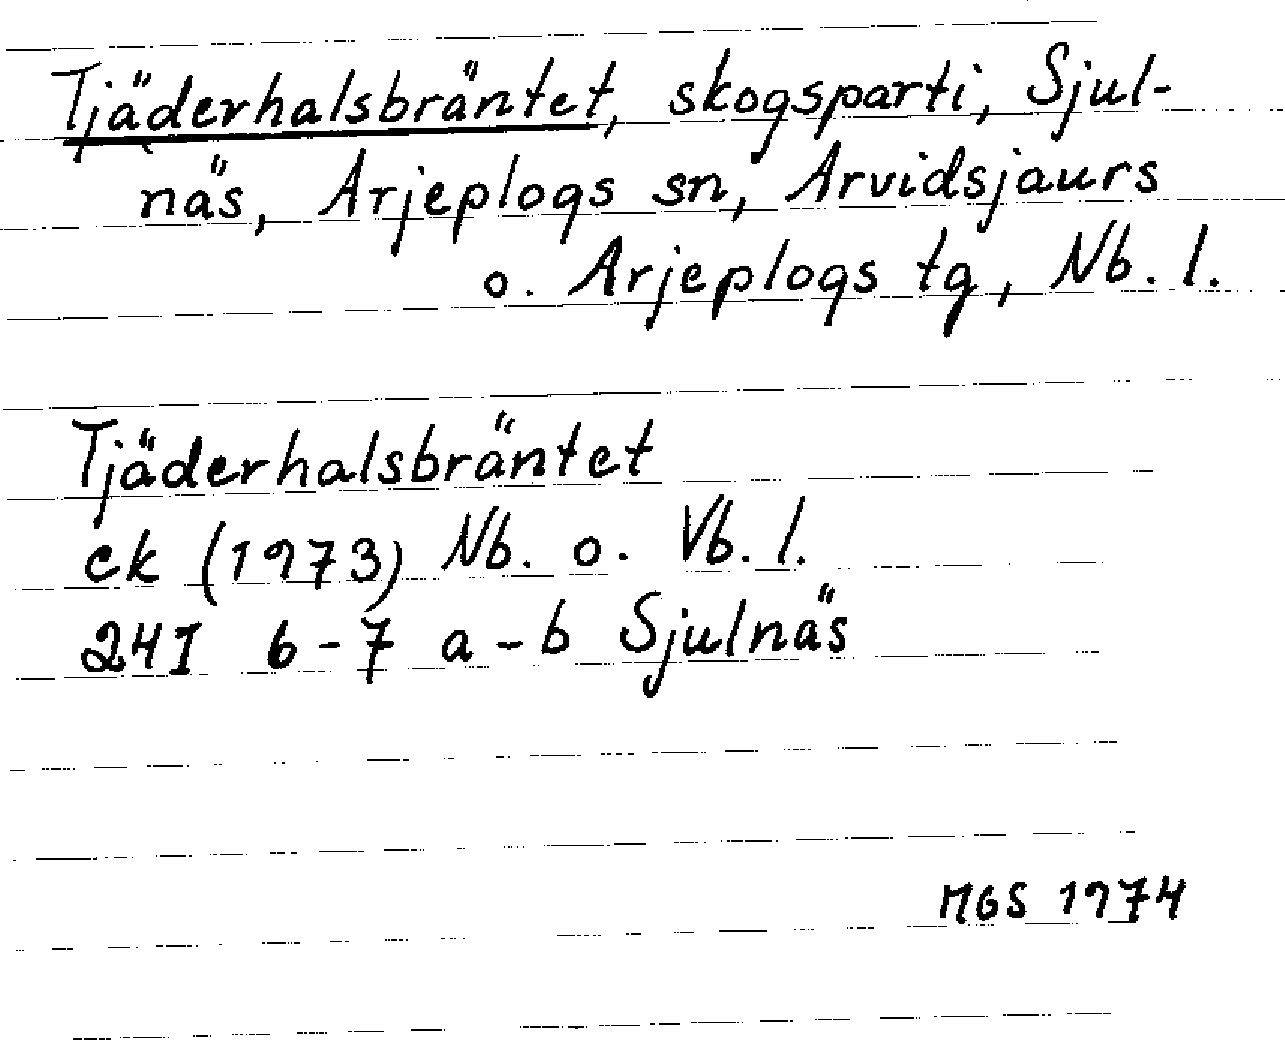 Tjäderhalsbräntet, skogsparti, Sjul-
näs, Arjeplogs sn, Arvidsjaurs
o. Arjeplogs tg, Nb. l.
Tjäderhalsbräntet
ek (1973) Nb. o. Vb. l.
24I 6-7 a-b Sjulnäs
MGS 1974